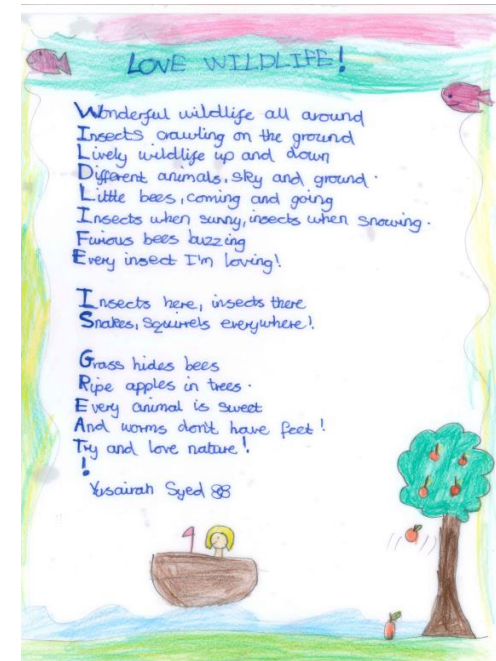 LOVE WILDLIFE!
Wonderful wildlife all around
Insects crawling on the ground
Lively wildlife up and down
Different animals, sky and ground.
Little bees, coming and going
Insects when sunny, insects when snowing.
Furious bees buzzing
Every insect I'm loving!
Insects here, insects there
Snakes, squirrels everywhere!
Grass hides bees
Ripe apples in trees.
Every animal is sweet
And worms don't have feet!
Try and love nature!
!
Yusairah Syed